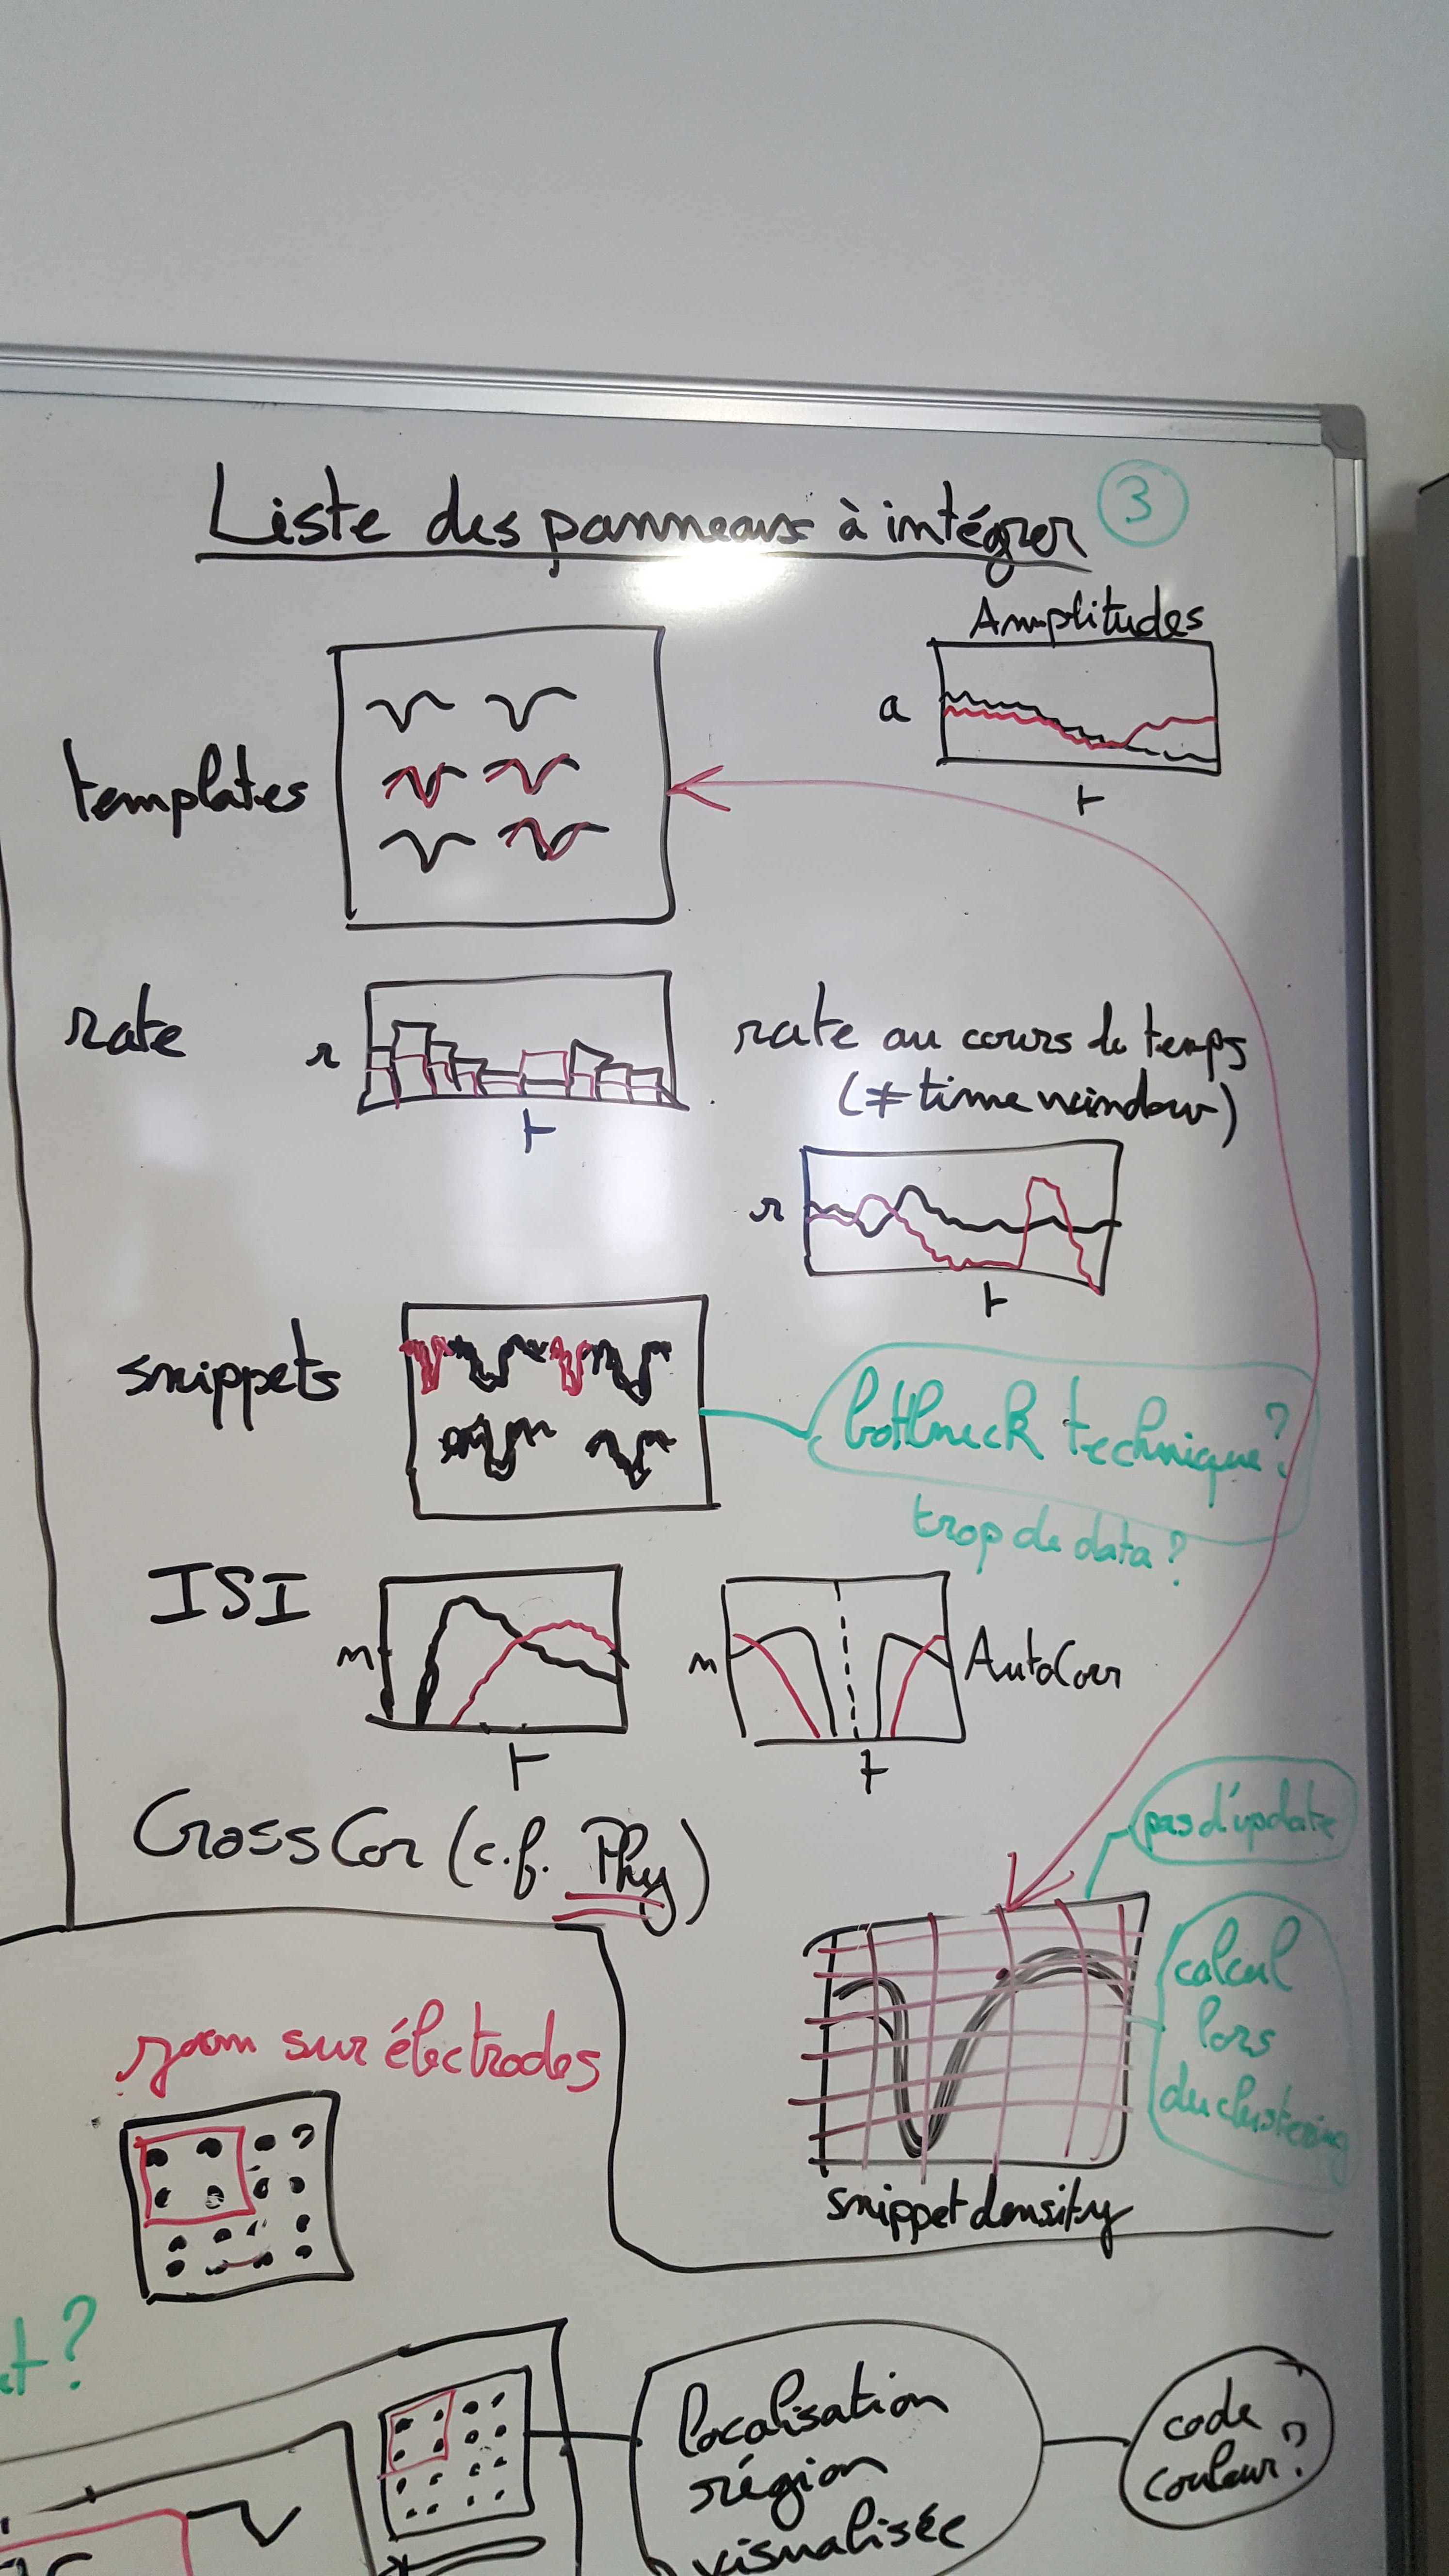 Liste des panneaux à intégrer
3
Amplitudes
a
t
templates
rate
r
t
rate au cours du temps
(≠ time window)
r
t
snippets
bottlneck technique?
trop de data?
ISI
n
t
n
AutoCorr
t
CrossCor (c.f. Phy)
pas d'update
calcul
lors
du clustering
snippet density
zoom sur électrodes
t?
localisation
région
visualisée
code
couleur?